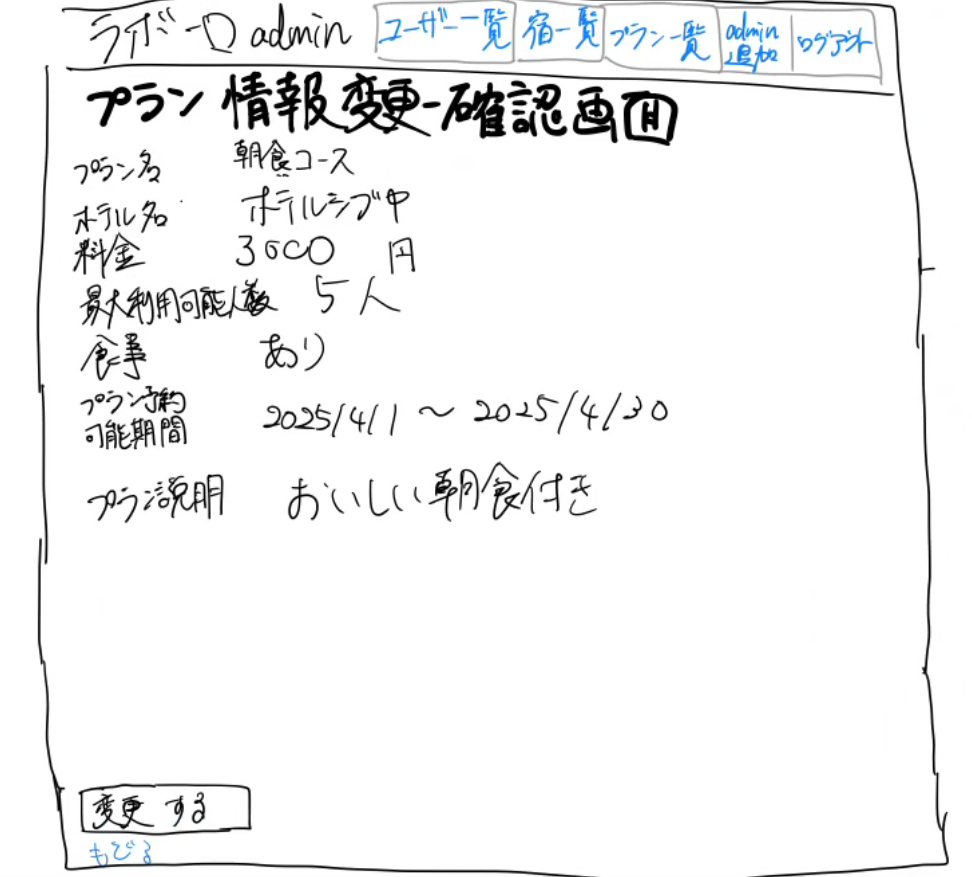 ライボーロ admin ユーザー一覧 宿一覧 プラン一覧 admin追加 ログアウト
プラン情報変更-確認画面
プラン名 朝食コース
ホテル名 ホテルシブヤ
料金 3000 円
最大利用可能人数 5人
食事 あり
プラン予約
可能期間 2025/4/1 ～ 2025/4/30
プラン説明 おいしい朝食付き
変更する
もどる